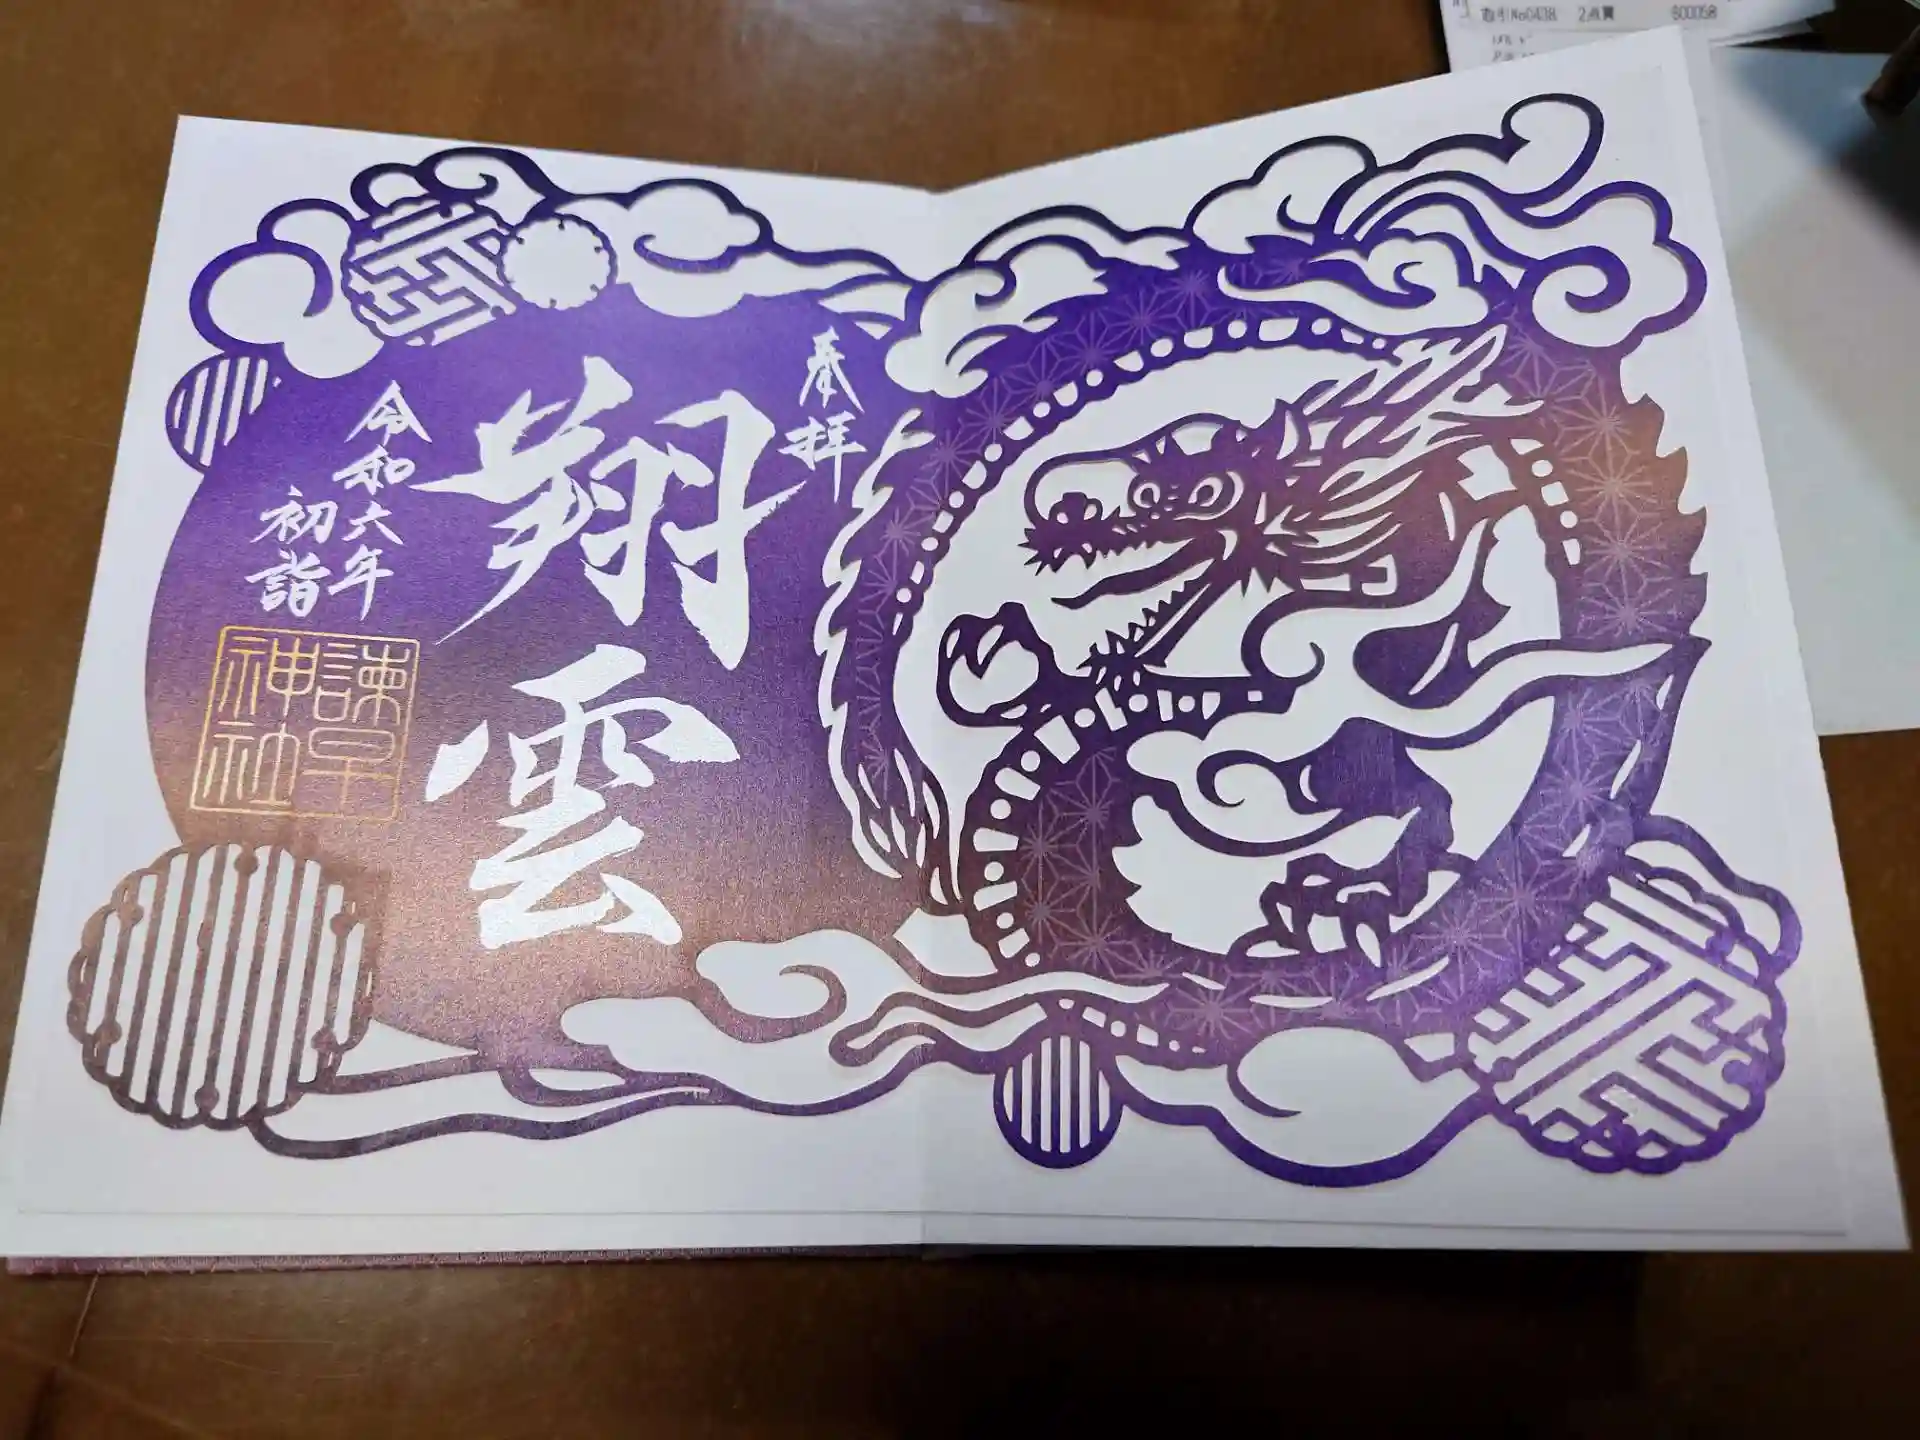 取引No0438 2点買 600058
奉拝
翔雲
令和六年
初詣
諫早
神社